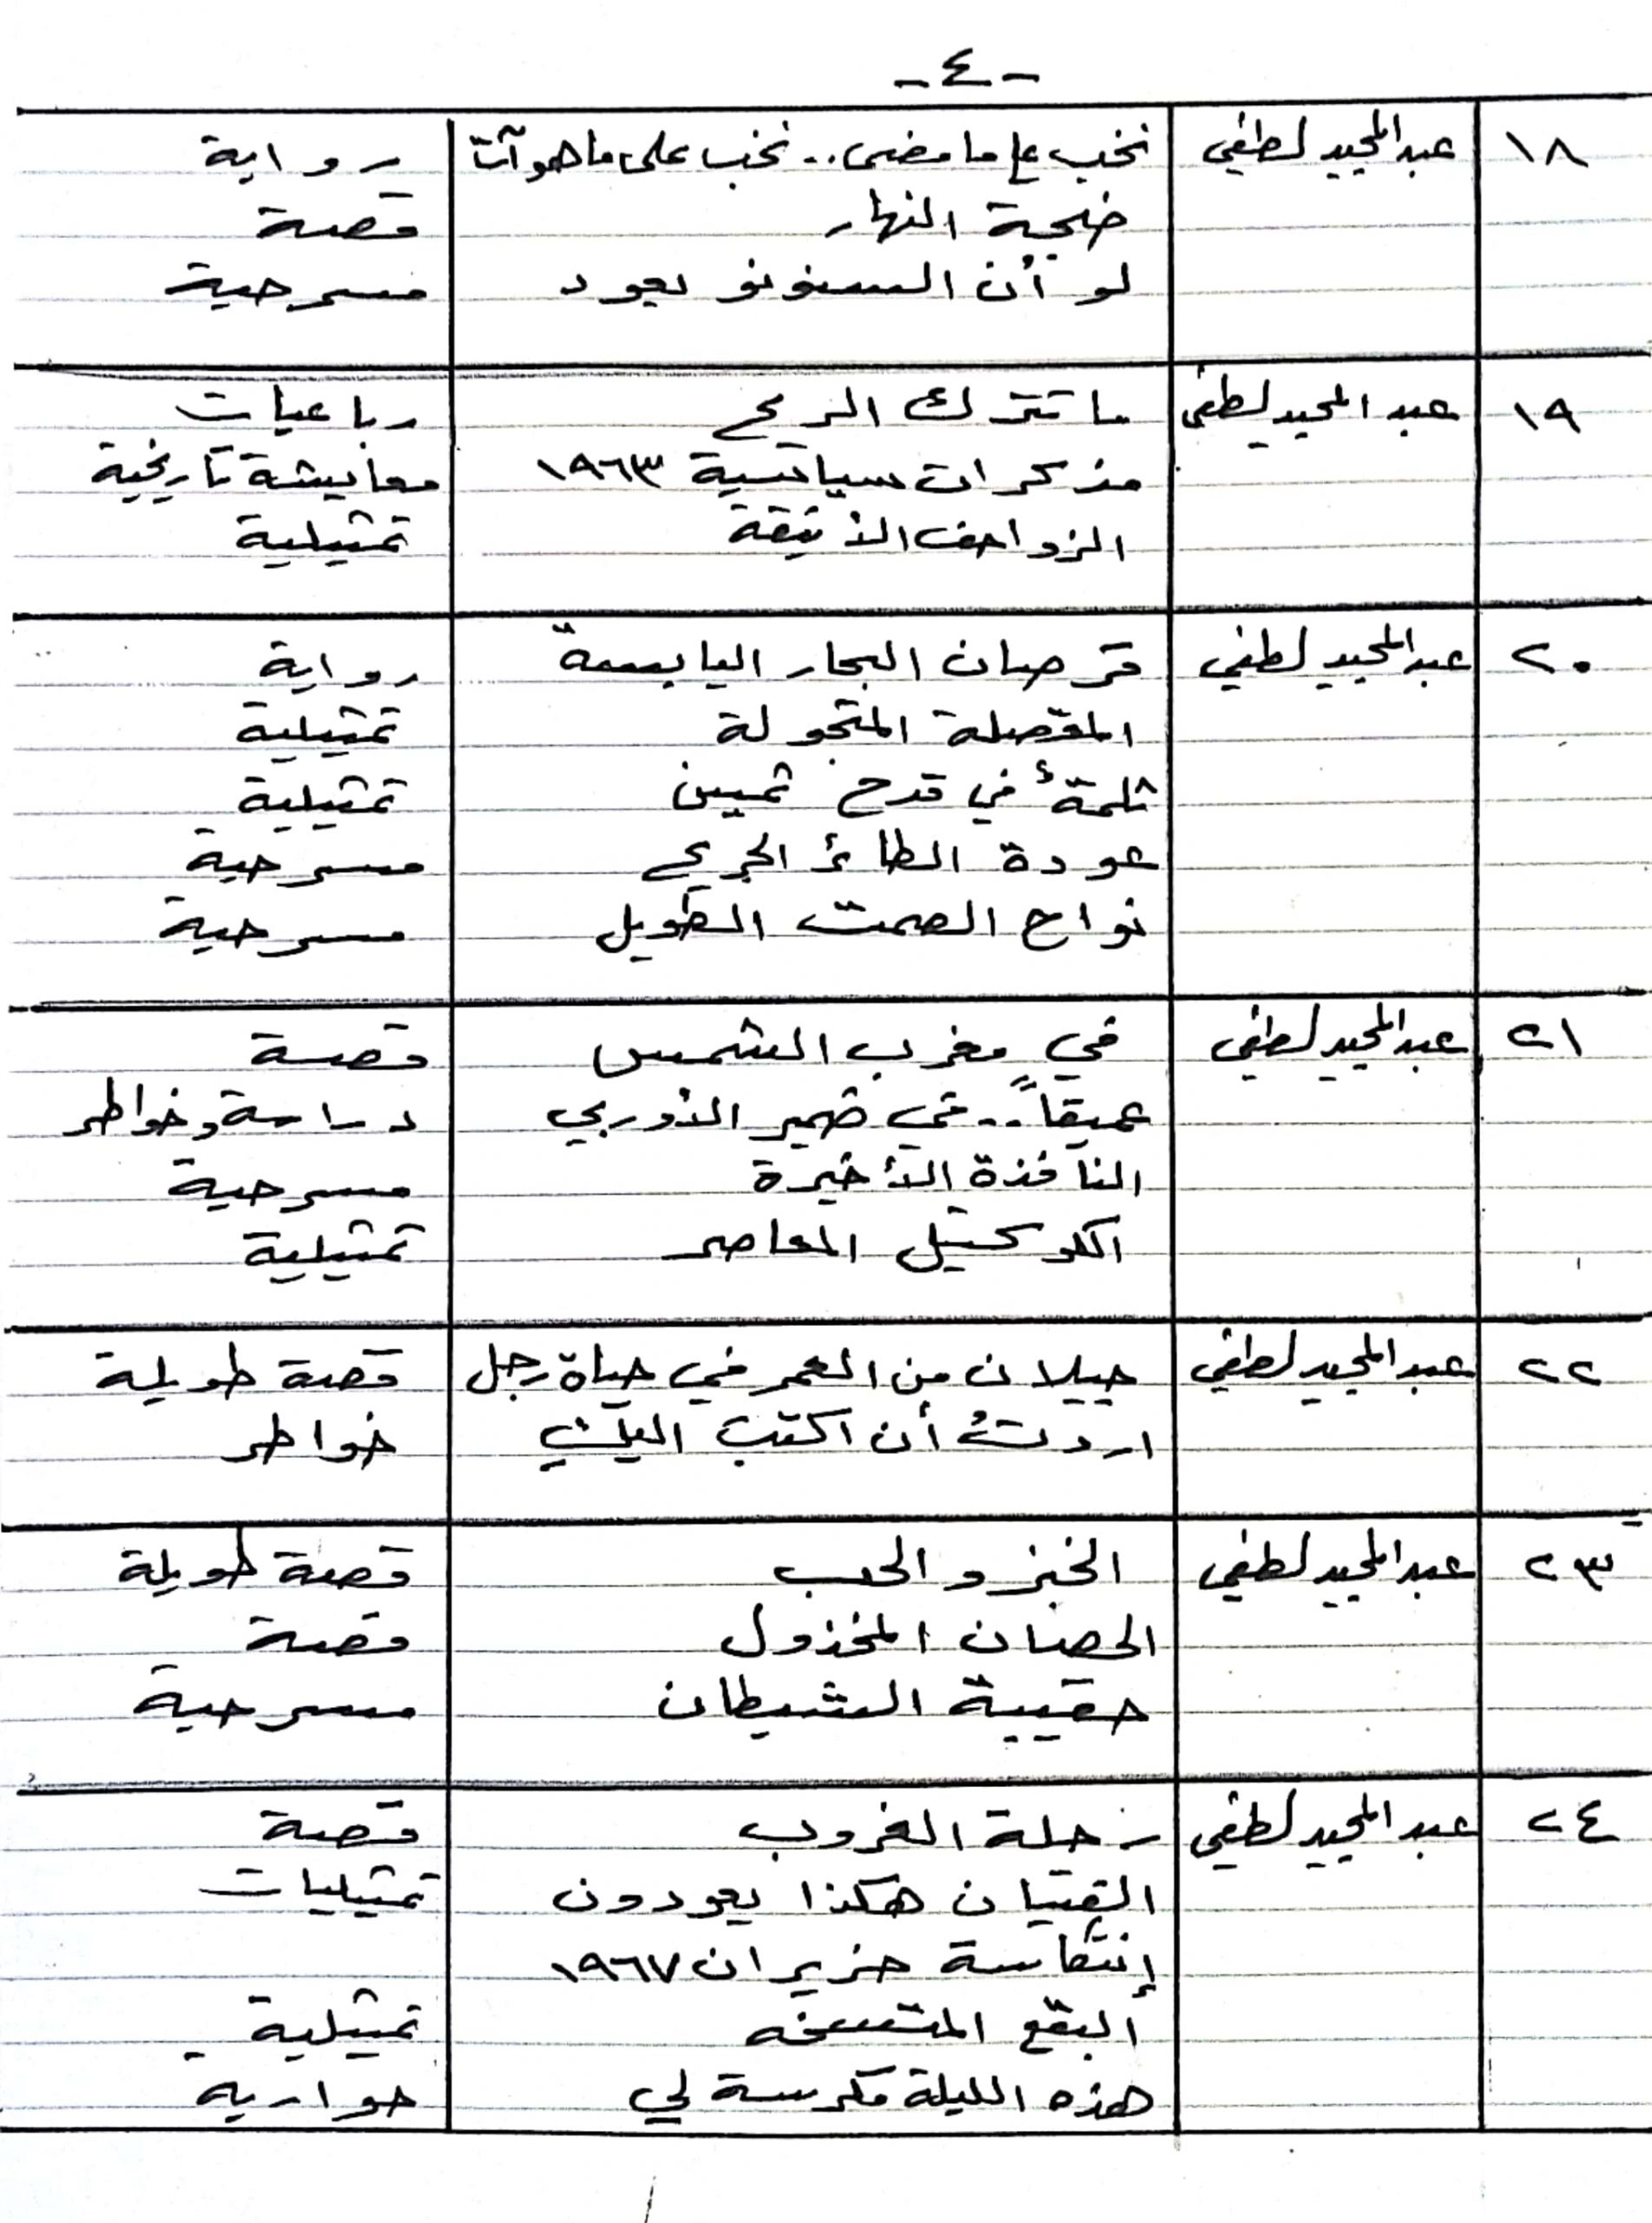 -٤-
١٨ عبد المجيد لطفي نخب على ما مضى.. نخب على ما هو آت رواية
ضجية النهار قصة
لو أن السنونو يعود مسرحية
١٩ عبد المجيد لطفي ما تترك الريح رباعيات
مذكرات سياسية ١٩٦٣ معايشة تاريخية
الزواحف الأنيقة تمثيلية
٢٠ عبد المجيد لطفي قرصان البحار اليابسة رواية
المقصلة المتجولة تمثيلية
ثلمةٌ في قدح ثمين تمثيلية
عودة الطائر الجريح مسرحية
نواح الصمت الطويل مسرحية
٢١ عبد المجيد لطفي في مغرب الشمس قصة
عميقاً.. في ضمير الأوربي دراسة وخواطر
النافذة الأخيرة مسرحية
الكوكتيل المعاصر تمثيلية
٢٢ عبد المجيد لطفي جيلان من العمر في حياة رجل قصة طويلة
اردتُ أن اكتب اليكِ خواطر
٢٣ عبد المجيد لطفي الخبز والحب قصة طويلة
الحصان المخذول قصة
حقيبة الشيطان مسرحية
٢٤ عبد المجيد لطفي رحلة الغروب قصة
الفتيان هكذا يعودون تمثيليات
إنتكاسة حزيران ١٩٦٧
البقع المتسخه تمثيلية
هذه الليلة مكرسة لي حواريه